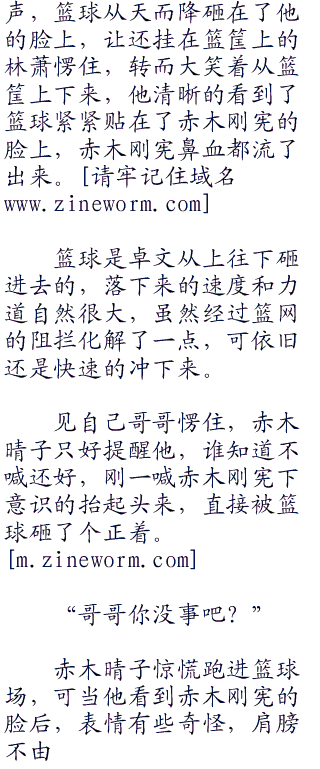 声，篮球从天而降砸在了他
的脸上，让还挂在篮筐上的
林萧愣住，转而大笑着从篮
筐上下来，他清晰的看到了
篮球紧紧贴在了赤木刚宪的
脸上，赤木刚宪鼻血都流了
出来。[请牢记住域名
www.zineworm.com]
篮球是卓文从上往下砸
进去的，落下来的速度和力
道自然很大，虽然经过篮网
的阻拦化解了一点，可依旧
还是快速的冲下来。
见自己哥哥愣住，赤木
晴子只好提醒他，谁知道不
喊还好，刚一喊赤木刚宪下
意识的抬起头来，直接被篮
球砸了个正着。
[m.zineworm.com]
“哥哥你没事吧？”
赤木晴子惊慌跑进篮球
场，可当他看到赤木刚宪的
脸后，表情有些奇怪，肩膀
不由